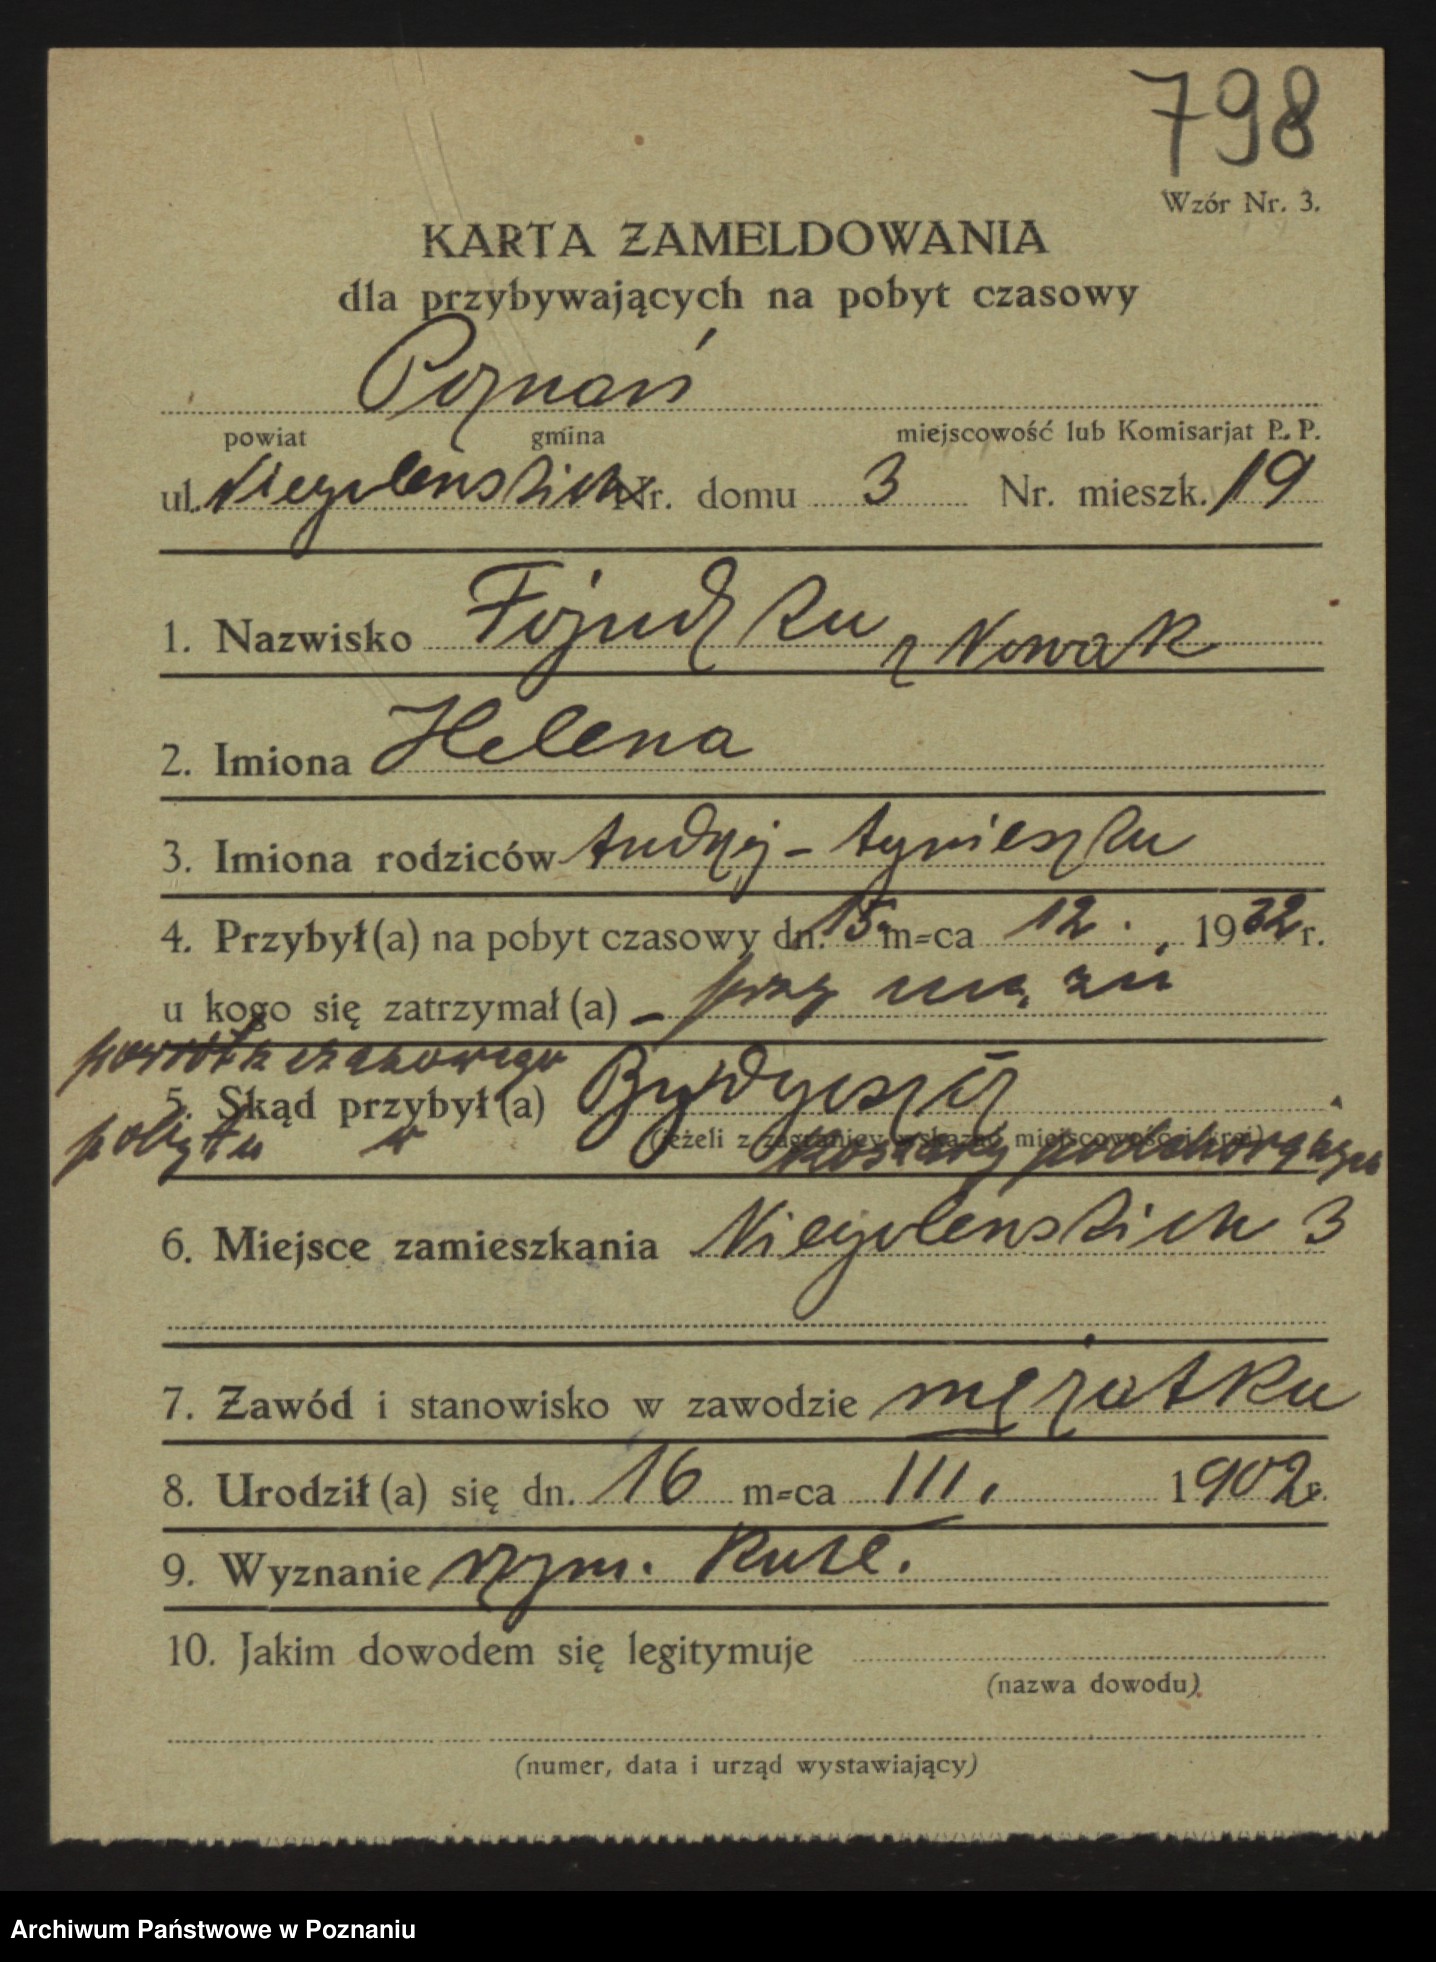 798
Wzór Nr. 3.
KARTA ZAMELDOWANIA
dla przybywających na pobyt czasowy
Poznań
powiat gmina miejscowość lub Komisarjat P. P.
ul. Niegolewskich Nr. domu 3 Nr. mieszk. 19
1. Nazwisko Fojudzka z Nowak
2. Imiona Helena
3. Imiona rodziców Andrzej - Agnieszka
4. Przybył(a) na pobyt czasowy dn. 15. m-ca 12. 1932 r.
u kogo się zatrzymał(a) - przy mężu
powrót z czasowego
5. Skąd przybył(a) Bydgoszcz
(jeżeli z zagranicy wskazać miejscowość i kraj)
pobytu w koszary podchorążych
6. Miejsce zamieszkania Niegolewskich 3
7. Zawód i stanowisko w zawodzie mężatka
8. Urodził(a) się dn. 16 m-ca III. 1902 r.
9. Wyznanie rzym. kat.
10. Jakim dowodem się legitymuje
(nazwa dowodu)
(numer, data i urząd wystawiający)
Archiwum Państwowe w Poznaniu